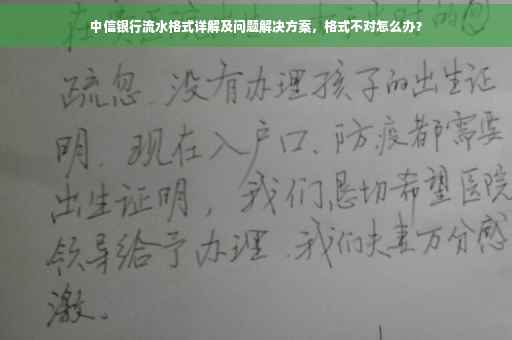 中信银行流水格式详解及问题解决方案，格式不对怎么办？
疏忽、没有办理孩子的出生证
明、现在入户口、防疫都需要
出生证明，我们恳切希望医院
领导给予办理、我们夫妻万分感
激。